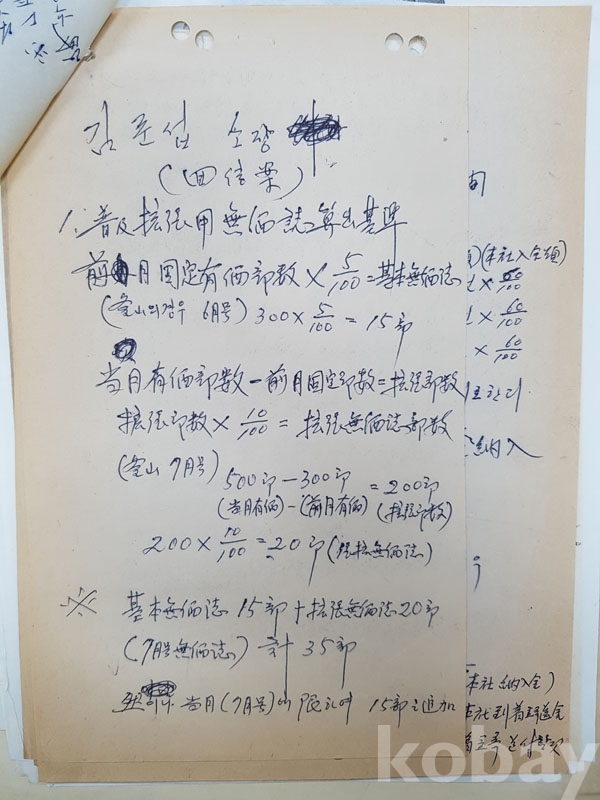 김준섭 소장
(回信案)
1. 普及拡張用 無価誌 算出基準
前月固定有価部数 × 5/100 = 基本無価誌
(釜山의경우 6月号) 300 × 5/100 = 15部
当月有価部数 - 前月固定部数 = 拡張部数
拡張部数 × 10/100 = 拡張無価誌部数
(釜山 7月号) 500部 - 300部 = 200部
(当月有価) - (前月有価) (拡張部数)
200 × 10/100 = 20部 (拡張無価誌)
※ 基本無価誌 15部 + 拡張無価誌 20部
(7月号無価誌) 計 35部
当月(7月号)에 限하여 15部를 追加
(本社入金額)
× 60/100
× 60/100
× 60/100
納入
本社納入金)
kobay